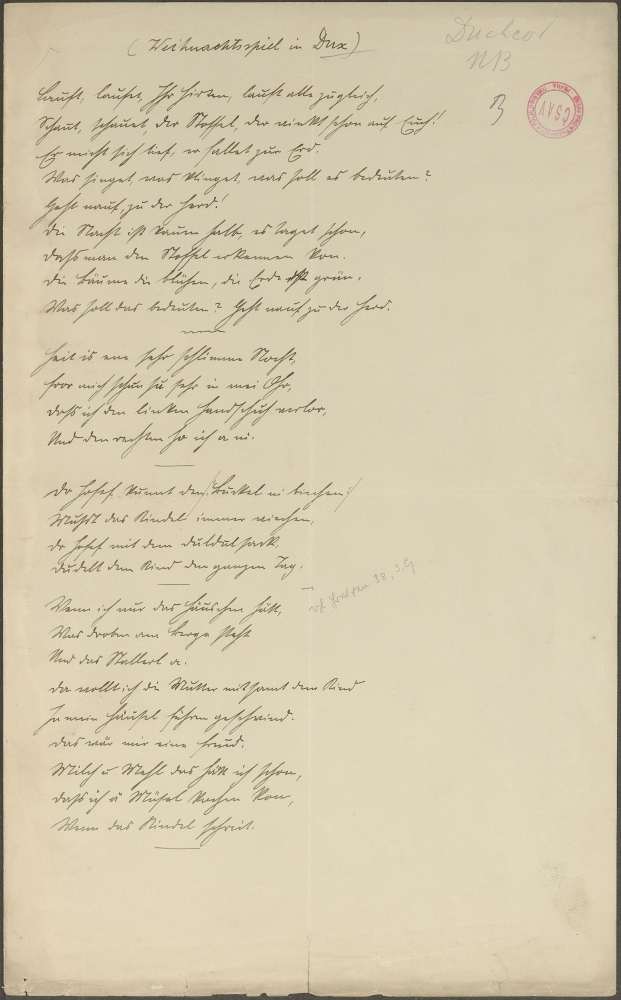 (Weihnachtsspiel in Dux)
Duchcov
NB
B
ČSAV
Lauft, laufet, Ihr Hirten, lauft alle zugleich,
Schaut, schauet, der Stoffel, der winkt schon auf Euch!
Er nicht sich tief, er fallet zur Erd.
Was singet, was klinget, was soll es bedeuten?
Geht nauf, zu der Herd!
Die Nacht ist kaum halb, es taget schon,
dass man den Stoffel erkennen kon.
Die Bäume die blühen, die Erde ist grün,
Was soll das bedeuten? Geht nauf zu der Herd.
Heit is ene sehr schlimme Nacht,
fror mich schun su sehr in mei Ohr,
dass ich den linken Handschuh verlor,
Und den rechten ho ich a ni.
Dr Josef kunnt den /: Buckel ni biechen :/
Musst das Kindel immer wiechen,
dr Josef mit dem Duldulsack,
dudelt dem Kind den ganzen Tag.
Wenn ich nur das Häuschen hätt,
38, 3.
Was droben am Berge steht
Und das Stallerl a.
da wollt ich die Mutter mitsamt dem Kind
In mein Häusel führen geschwind.
Das wär mir eine Freud.
Milch u Mehl das hätt ich schon,
dass ich a Müsel kochen kon,
Wenn das Kindel schreit.